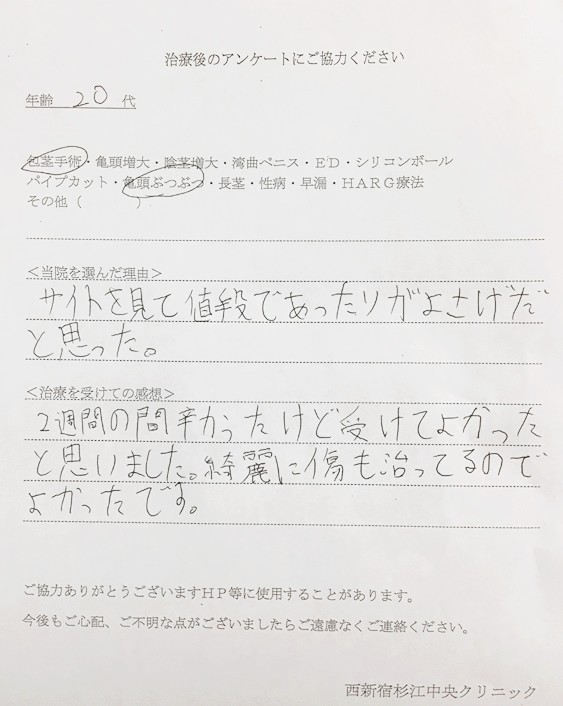 治療後のアンケートにご協力ください
年齢 20 代
包茎手術・亀頭増大・陰茎増大・湾曲ペニス・ED・シリコンボール
パイプカット・亀頭ぶつぶつ・長茎・性病・早漏・HARG療法
その他（　　　　）
＜当院を選んだ理由＞
サイトを見て値段であったりがよさげだ
と思った。
＜治療を受けての感想＞
2週間の間辛かったけど受けてよかった
と思いました。綺麗に傷も治ってるので
よかったです。
ご協力ありがとうございますHP等に使用することがあります。
今後もご心配、ご不明な点がございましたらご遠慮なくご連絡ください。
西新宿杉江中央クリニック